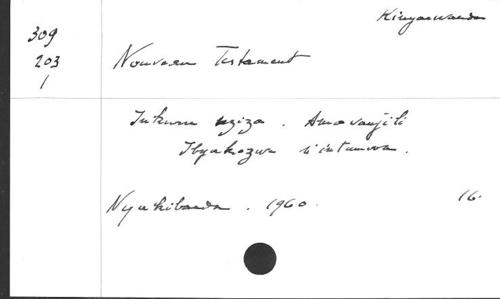 Kinyarwanda
309
203
1
Nouveau Testament
Inkuru nziza. Amavanjili
Ibyakozwe n'intumwa.
Nyakibanda. 1960.
16.